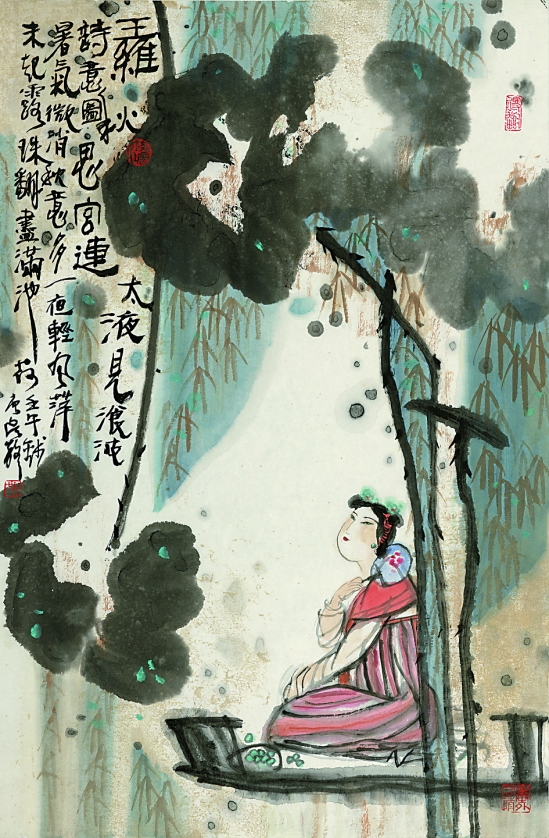 王維
詩意圖
秋思宮連
太液見滄波
暑氣微消秋意多一夜輕風萍
末起露珠翻盡滿池
荷壬午秋